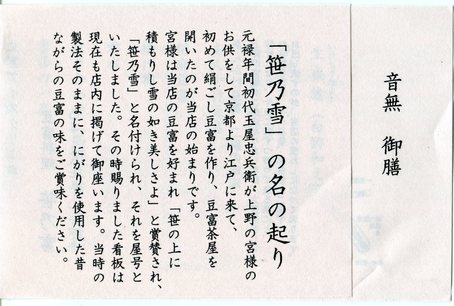 音無 御膳
「笹乃雪」の名の起り
元禄年間初代玉屋忠兵衛が上野の宮様の
お供をして京都より江戸に来て、
初めて絹ごし豆富を作り、豆富茶屋を
開いたのが当店の始まりです。
宮様は当店の豆富を好まれ「笹の上に
積もりし雪の如き美しさよ」と賞賛され、
「笹乃雪」と名付けられ、それを屋号と
いたしました。その時賜りました看板は
現在も店内に掲げて御座います。当時の
製法そのままに、にがりを使用した昔
ながらの豆富の味をご賞味ください。